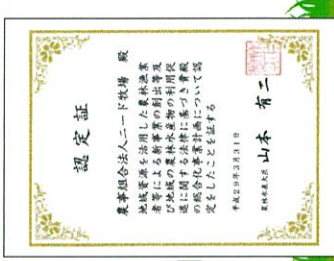 認定証
農事組合法人ニード牧場 殿
地域資源を活用した農林漁業
者等による新事業の創出等及
び地域の農林水産物の利用促
進に関する法律に基づき貴殿
の総合化事業計画について認
定をしたことを証する
平成29年3月31日
農林水産大臣 山本 有二